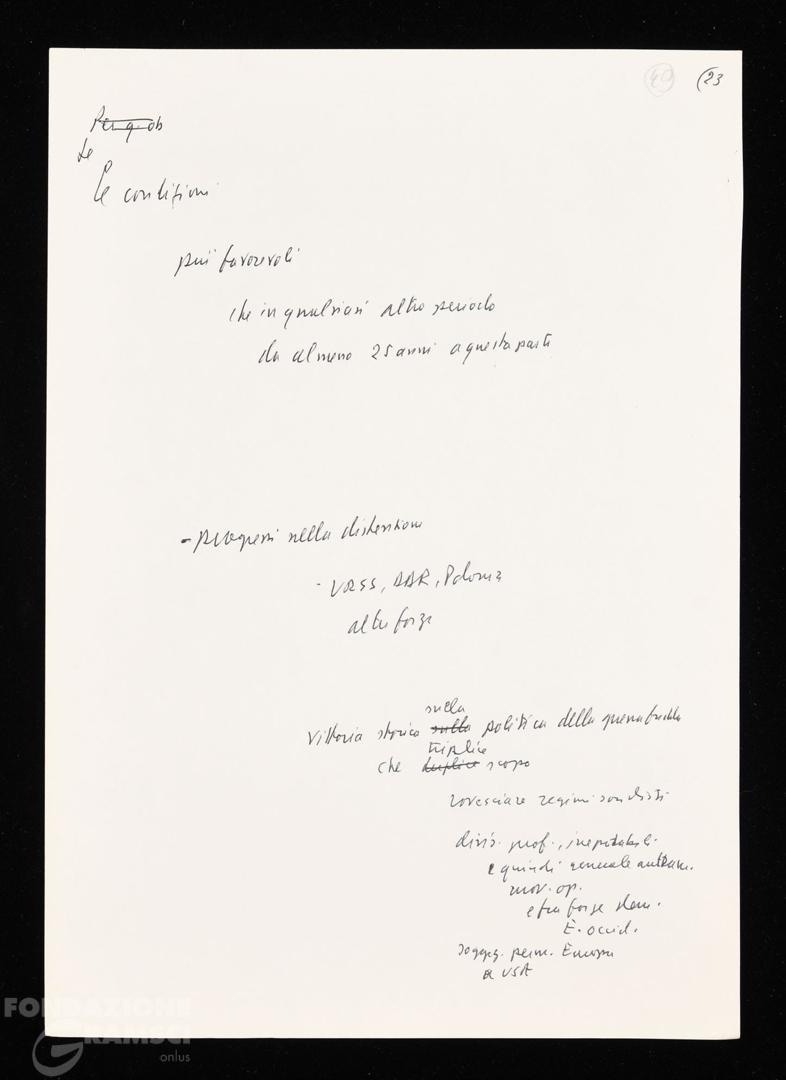 40 (23
Le
Le condizioni
più favorevoli
che in qualsiasi altro periodo
da almeno 25 anni a questa parte
- progressi nella distensione
- URSS, DDR, Polonia
altre forze
sulla
Vittoria storica sulla politica della guerra fredda
triplice
che duplice scopo
rovesciare regimi socialisti
divis. prof.,
e quindi
mov. op.
e fra forze dem.
E. occid.
sogg. perm. Europa
a USA
FONDAZIONE
GRAMSCI
onlus